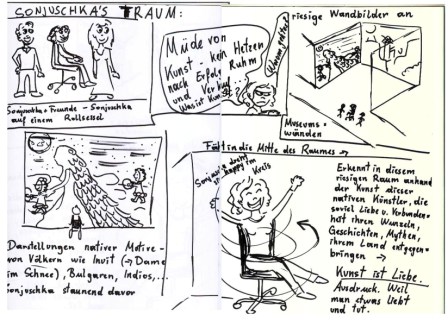 SONJUSCHKA'S TRAUM:
Sonjuschka + Freunde - Sonjuschka
auf einem Rollsessel
Müde von
Kunst - kein Hetzen
nach Erfolg Ruhm
und Verkauf
Was ist Kunst?
riesige Wandbilder an
Museums-
wänden
Darstellungen nativer Motive -
von Völkern wie Inuit (→ Dame
im Schnee), Bulgaren, Indios,...
Sonjuschka staunend davor
Fährt in die Mitte des Raumes →
Sonjuschka dreht
sich happy im
Kreis
Erkennt in diesem
riesigen Raum anhand
der Kunst dieser
nativen Künstler, die
soviel Liebe u. Verbunden-
heit ihren Wurzeln,
Geschichten, Mythen,
ihrem Land entgegen-
bringen →
Kunst ist Liebe.
Ausdruck. Weil
man etwas liebt
und tut.